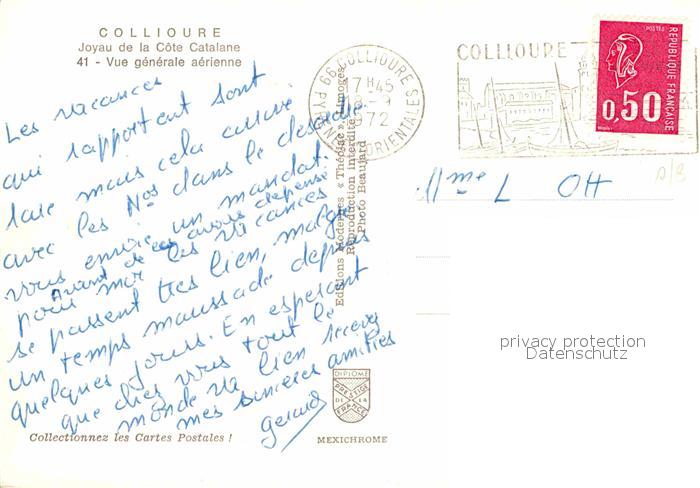 COLLIOURE
Joyau de la Côte Catalane
41 - Vue générale aérienne
Les vacances
qui rapportent sont
rare mais cela arrive
avec les Nos dans le desordre
vous envoie un mandat.
Avant de les avoirs depensé
pour moi les vacances
se passent tres bien, malgré
un temps maussade depuis
quelques jours. En esperant
que chez vous tout le
monde va bien recevez
mes sinceres amitiés
Gerard
Collectionnez les Cartes Postales !
DIPLOME
PRESTIGE
DE LA
FRANCE
MEXICHROME
Editions Modernes « Théojac », Limoges
Reproduction Interdite
Photo Beaujard
66 COLLIOURE
17 H 45
-9
1972
PYRENEES ORIENTALES
COLLIOURE
POSTES
REPUBLIQUE FRANÇAISE
0,50
privacy protection
Datenschutz